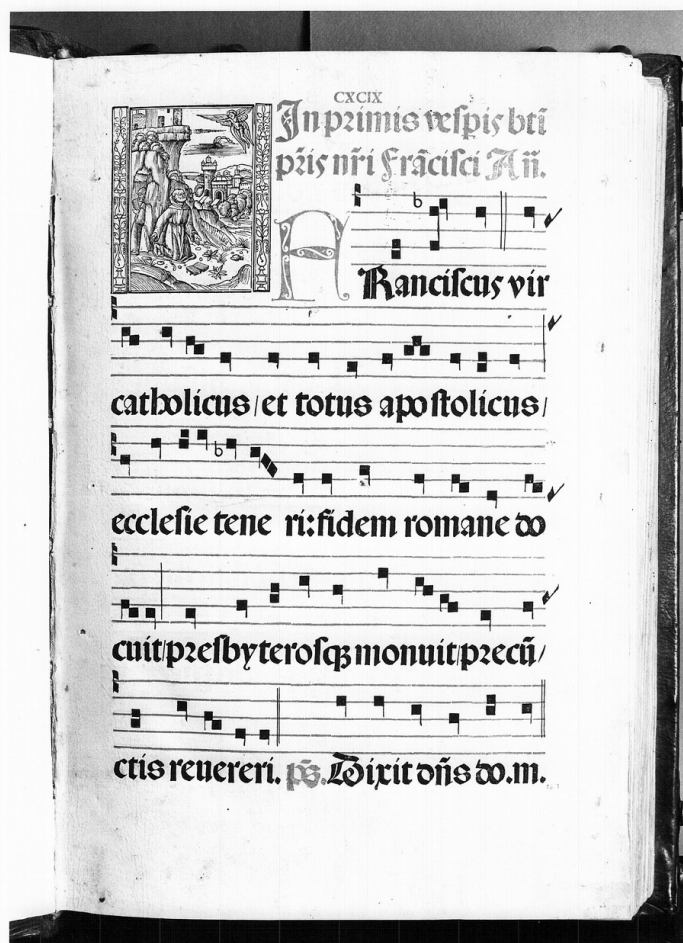 CXCIX
In primis vesp̄is bt̄i
pr̄is nr̄i Frācisci An̄.
FRanciscus vir
catholicus / et totus apostolicus /
ecclesie tene ri: fidem romane do
cuit / presbyterosqꝫ monuit / precū /
ctis reuereri. ps̄. Dixit dn̄s do.m.